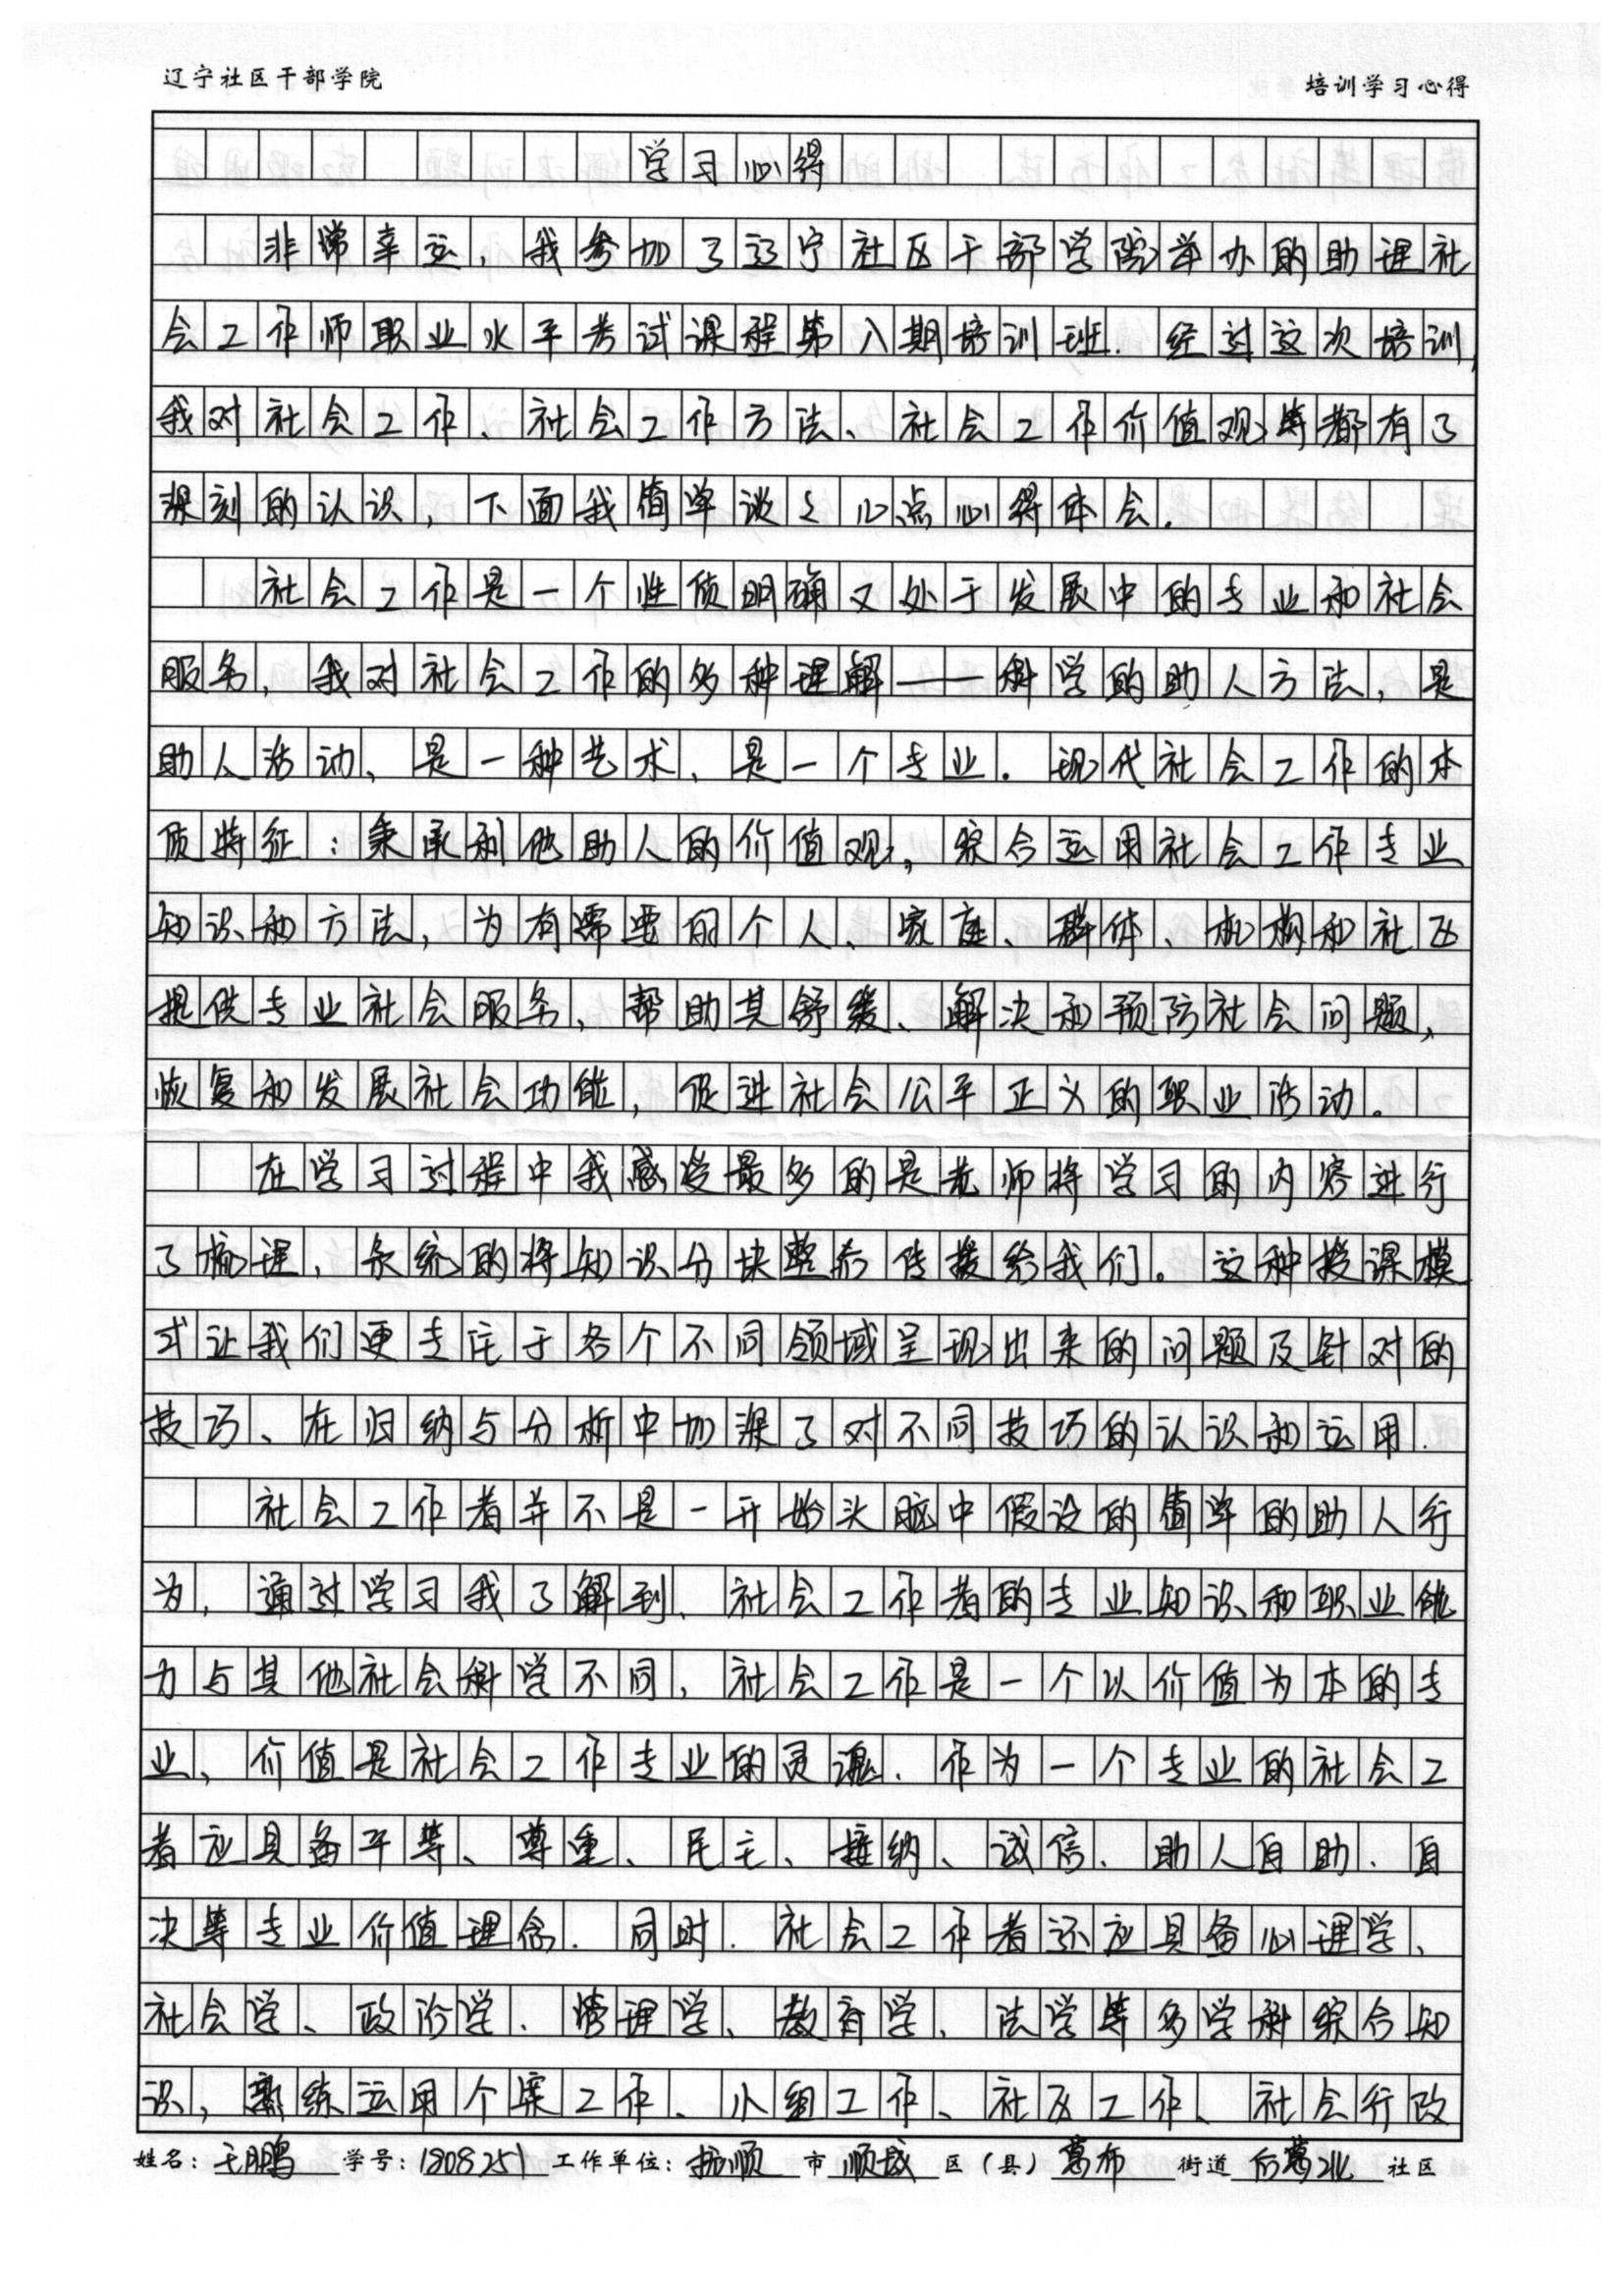 辽宁社区干部学院 培训学习心得
学习心得
非常幸运，我参加了辽宁社区干部学院举办的助理社
会工作师职业水平考试课程第八期培训班．经过这次培训，
我对社会工作、社会工作方法、社会工作价值观等都有了
深刻的认识，下面我简单谈谈心点心得体会．
社会工作是一个性质明确又处于发展中的专业和社会
服务，我对社会工作的多种理解——科学的助人方法，是
助人活动、是一种艺术、是一个专业．现代社会工作的本
质特征：秉承利他助人的价值观，综合运用社会工作专业
知识和方法，为有需要的个人、家庭、群体、机构和社区
提供专业社会服务，帮助其舒缓、解决和预防社会问题，
恢复和发展社会功能，促进社会公平正义的职业活动。
在学习过程中我感受最多的是老师将学习的内容进行
了梳理，系统的将知识分块整合传授给我们。这种授课模
式让我们更专注于各个不同领域呈现出来的问题及针对的
技巧、在归纳与分析中加深了对不同技巧的认识和运用．
社会工作者并不是一开始头脑中假设的简单的助人行
为，通过学习我了解到、社会工作者的专业知识和职业能
力与其他社会科学不同，社会工作是一个以价值为本的专
业，价值是社会工作专业的灵魂．作为一个专业的社会工
者应具备平等、尊重、民主、接纳、诚信、助人自助．自
决等专业价值理念．同时．社会工作者还应具备心理学、
社会学、政治学．管理学、教育学、法学等多学科综合知
识，熟练运用个案工作、小组工作、社区工作、社会行政
姓名：王鹏 学号：1808251 工作单位：抚顺 市 顺城 区（县）葛布 街道 后葛北 社区